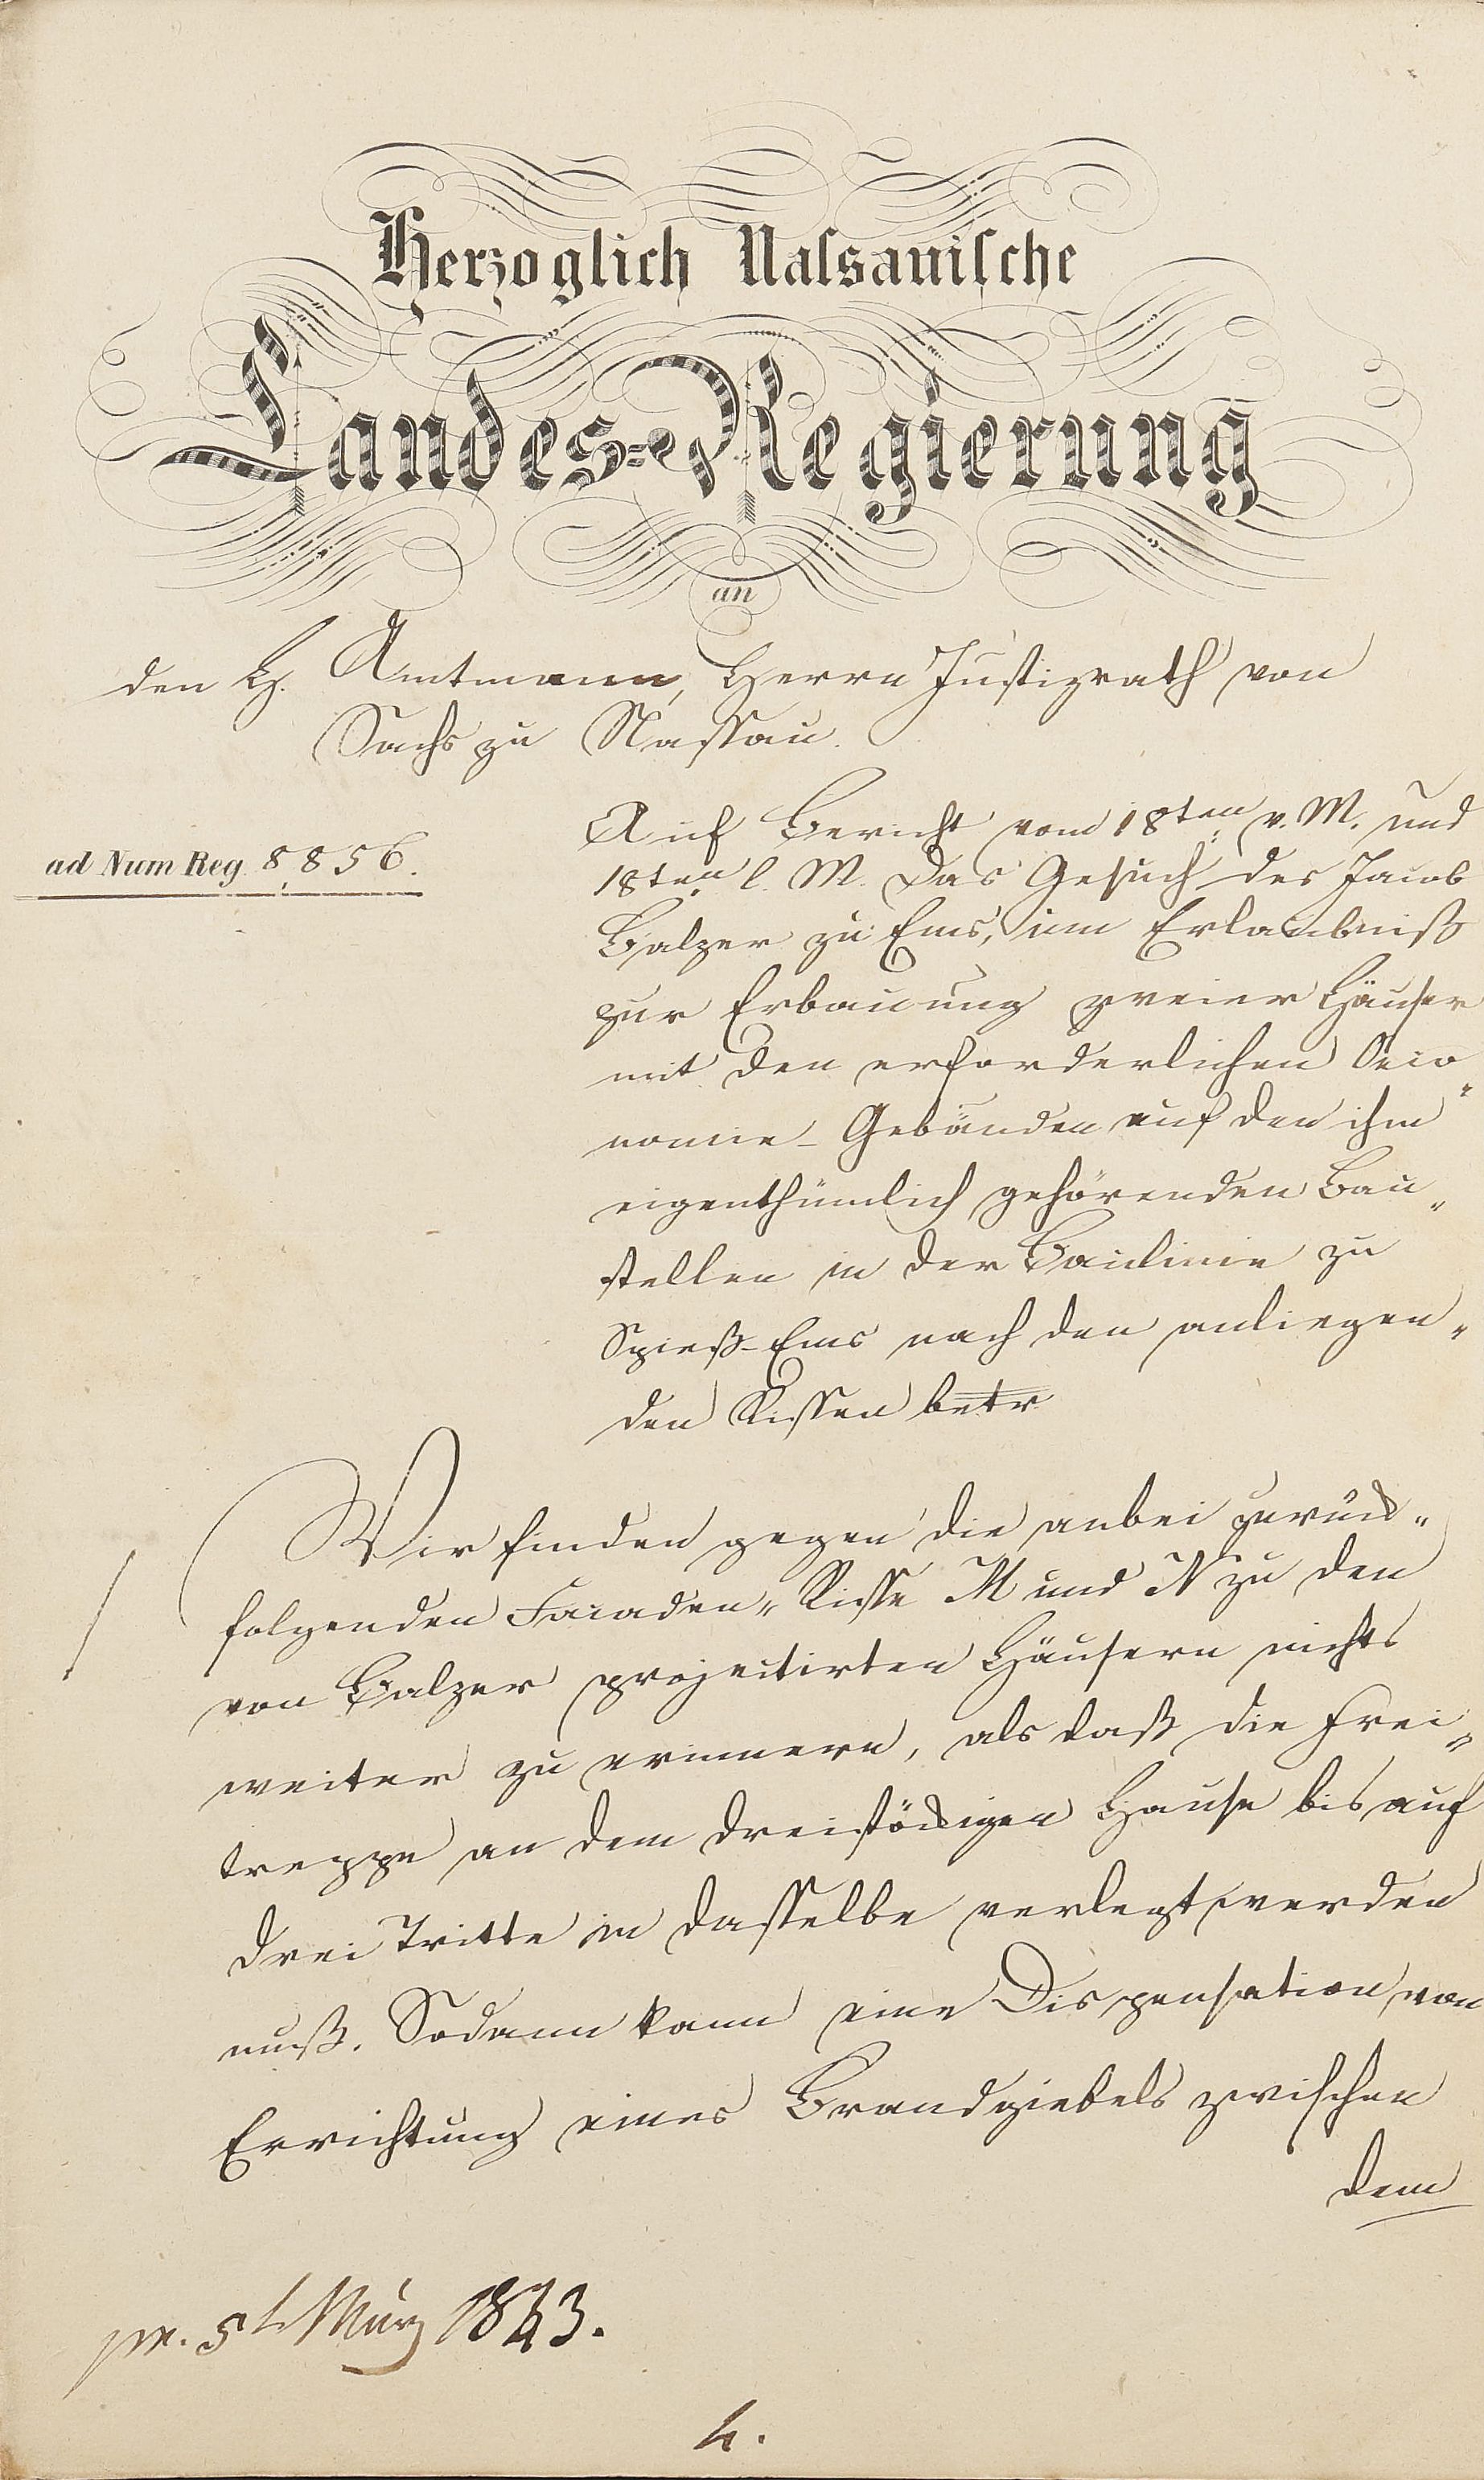 Herzoglich Nassauische
Landes-Regierung
an
den H. Amtmann, Herrn Justizrath von
Sachs zu Nassau.
ad Num Reg. 8,856.
Auf Bericht vom 18ten v. M. und
18ten l. M. das Gesuch des Jacob
Balzer zu Ems, um Erlaubniß
zur Erbauung zweier Häuser
mit den erforderlichen Oeco„
nomie-Gebäuden auf den ihm
eigenthümlich gehörenden Bau„
stellen in der Baulinie zu
Spieß-Ems nach den anliegen„
den Rissen betr
Wir finden gegen die anbei zurück„
folgenden Facaden„Risse M und N zu den
von Balzer projectirten Häusern nichts
weiter zu erinnern, als daß die Frei„
treppe an dem dreistöckigen Hause bis auf
drei Tritte in dasselbe verlegt werden
muß. Sodann kann eine Dispensation von
Errichtung eines Brandgiebels zwischen
dem
pr. 5t März 1843.